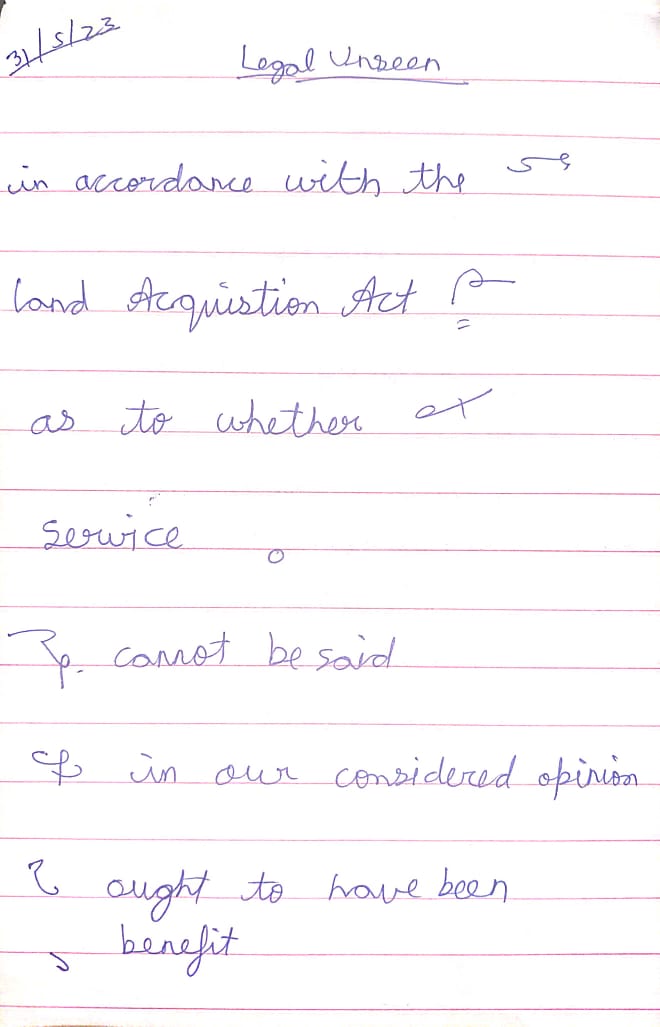 31/5/23
Legal Unseen
in accordance with the
Land Acquistion Act
as to whether
Service
cannot be said
in our considered opinion
ought to have been
benefit